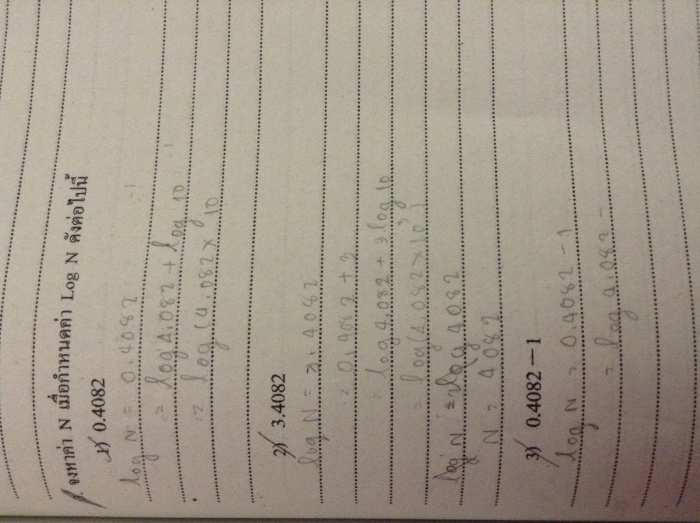 จงหาค่า N เมื่อกำหนดค่า Log N ดังต่อไปนี้
1) 0.4082
log N = 0.4082
= log 4.082 + log 10⁻¹
= log (4.082 × 10⁻¹
2) 3.4082
log N = 3.4082
= 0.4082 + 3
= log 4.082 + 3 log 10
= log (4.082 × 10³)
log N = log 4082
N = 4082
3) 0.4082 – 1
log N = 0.4082 - 1
= log 4.082 -